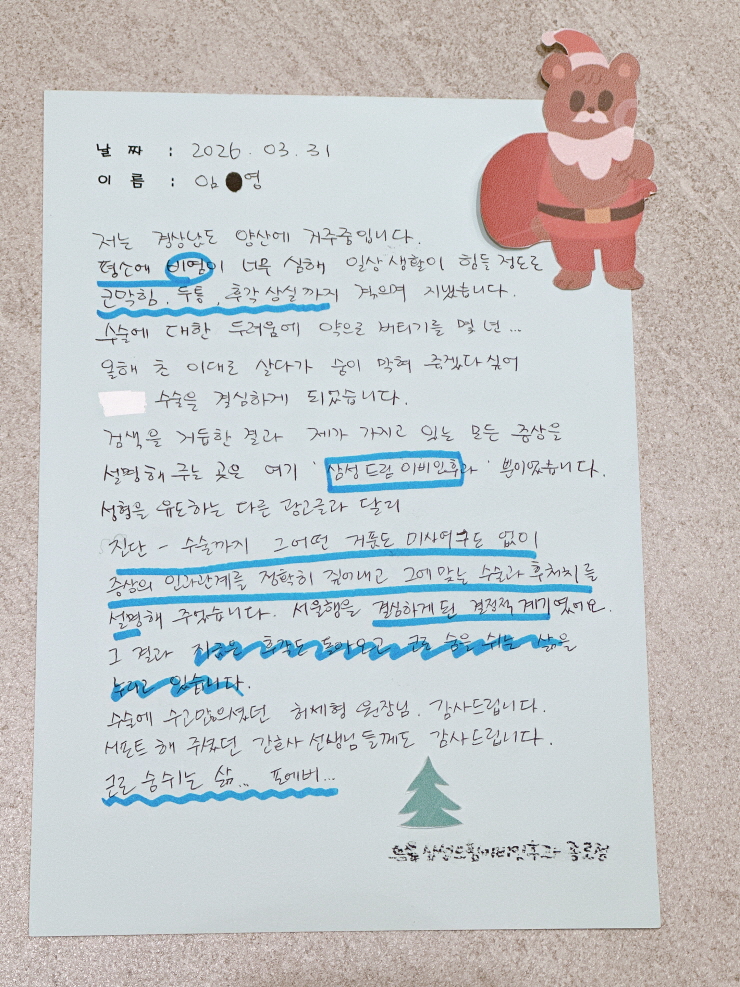 날 짜 : 2026. 03. 31
이 름 : 임 영
저는 경상남도 양산에 거주중입니다.
평소에 비염이 너무 심해 일상생활이 힘들 정도로
코막힘, 두통, 후각상실까지 겪으며 지냈습니다.
수술에 대한 두려움에 약으로 버티기를 몇 년...
올해 초 이대로 살다가 숨이 막혀 죽겠다 싶어
수술을 결심하게 되었습니다.
검색을 거듭한 결과 제가 가지고 있는 모든 증상을
설명해 주는 곳은 여기 '삼성드림이비인후과' 뿐이었습니다.
성형을 유도하는 다른 광고글과 달리
진단 - 수술까지 그 어떤 거품도 미사여구도 없이
증상의 인과관계를 정확히 짚어내고 그에 맞는 수술과 후처치를
설명해 주었습니다. 서울행을 결심하게 된 결정적 계기였어요.
그 결과 지금은 후각도 돌아오고 코로 숨을 쉬는 삶을
누리고 있습니다.
수술에 수고많으셨던 허세형 원장님. 감사드립니다.
서포트 해 주셨던 간호사 선생님들께도 감사드립니다.
코로 숨쉬는 삶... 포에버...
삼성드림이비인후과 종로점